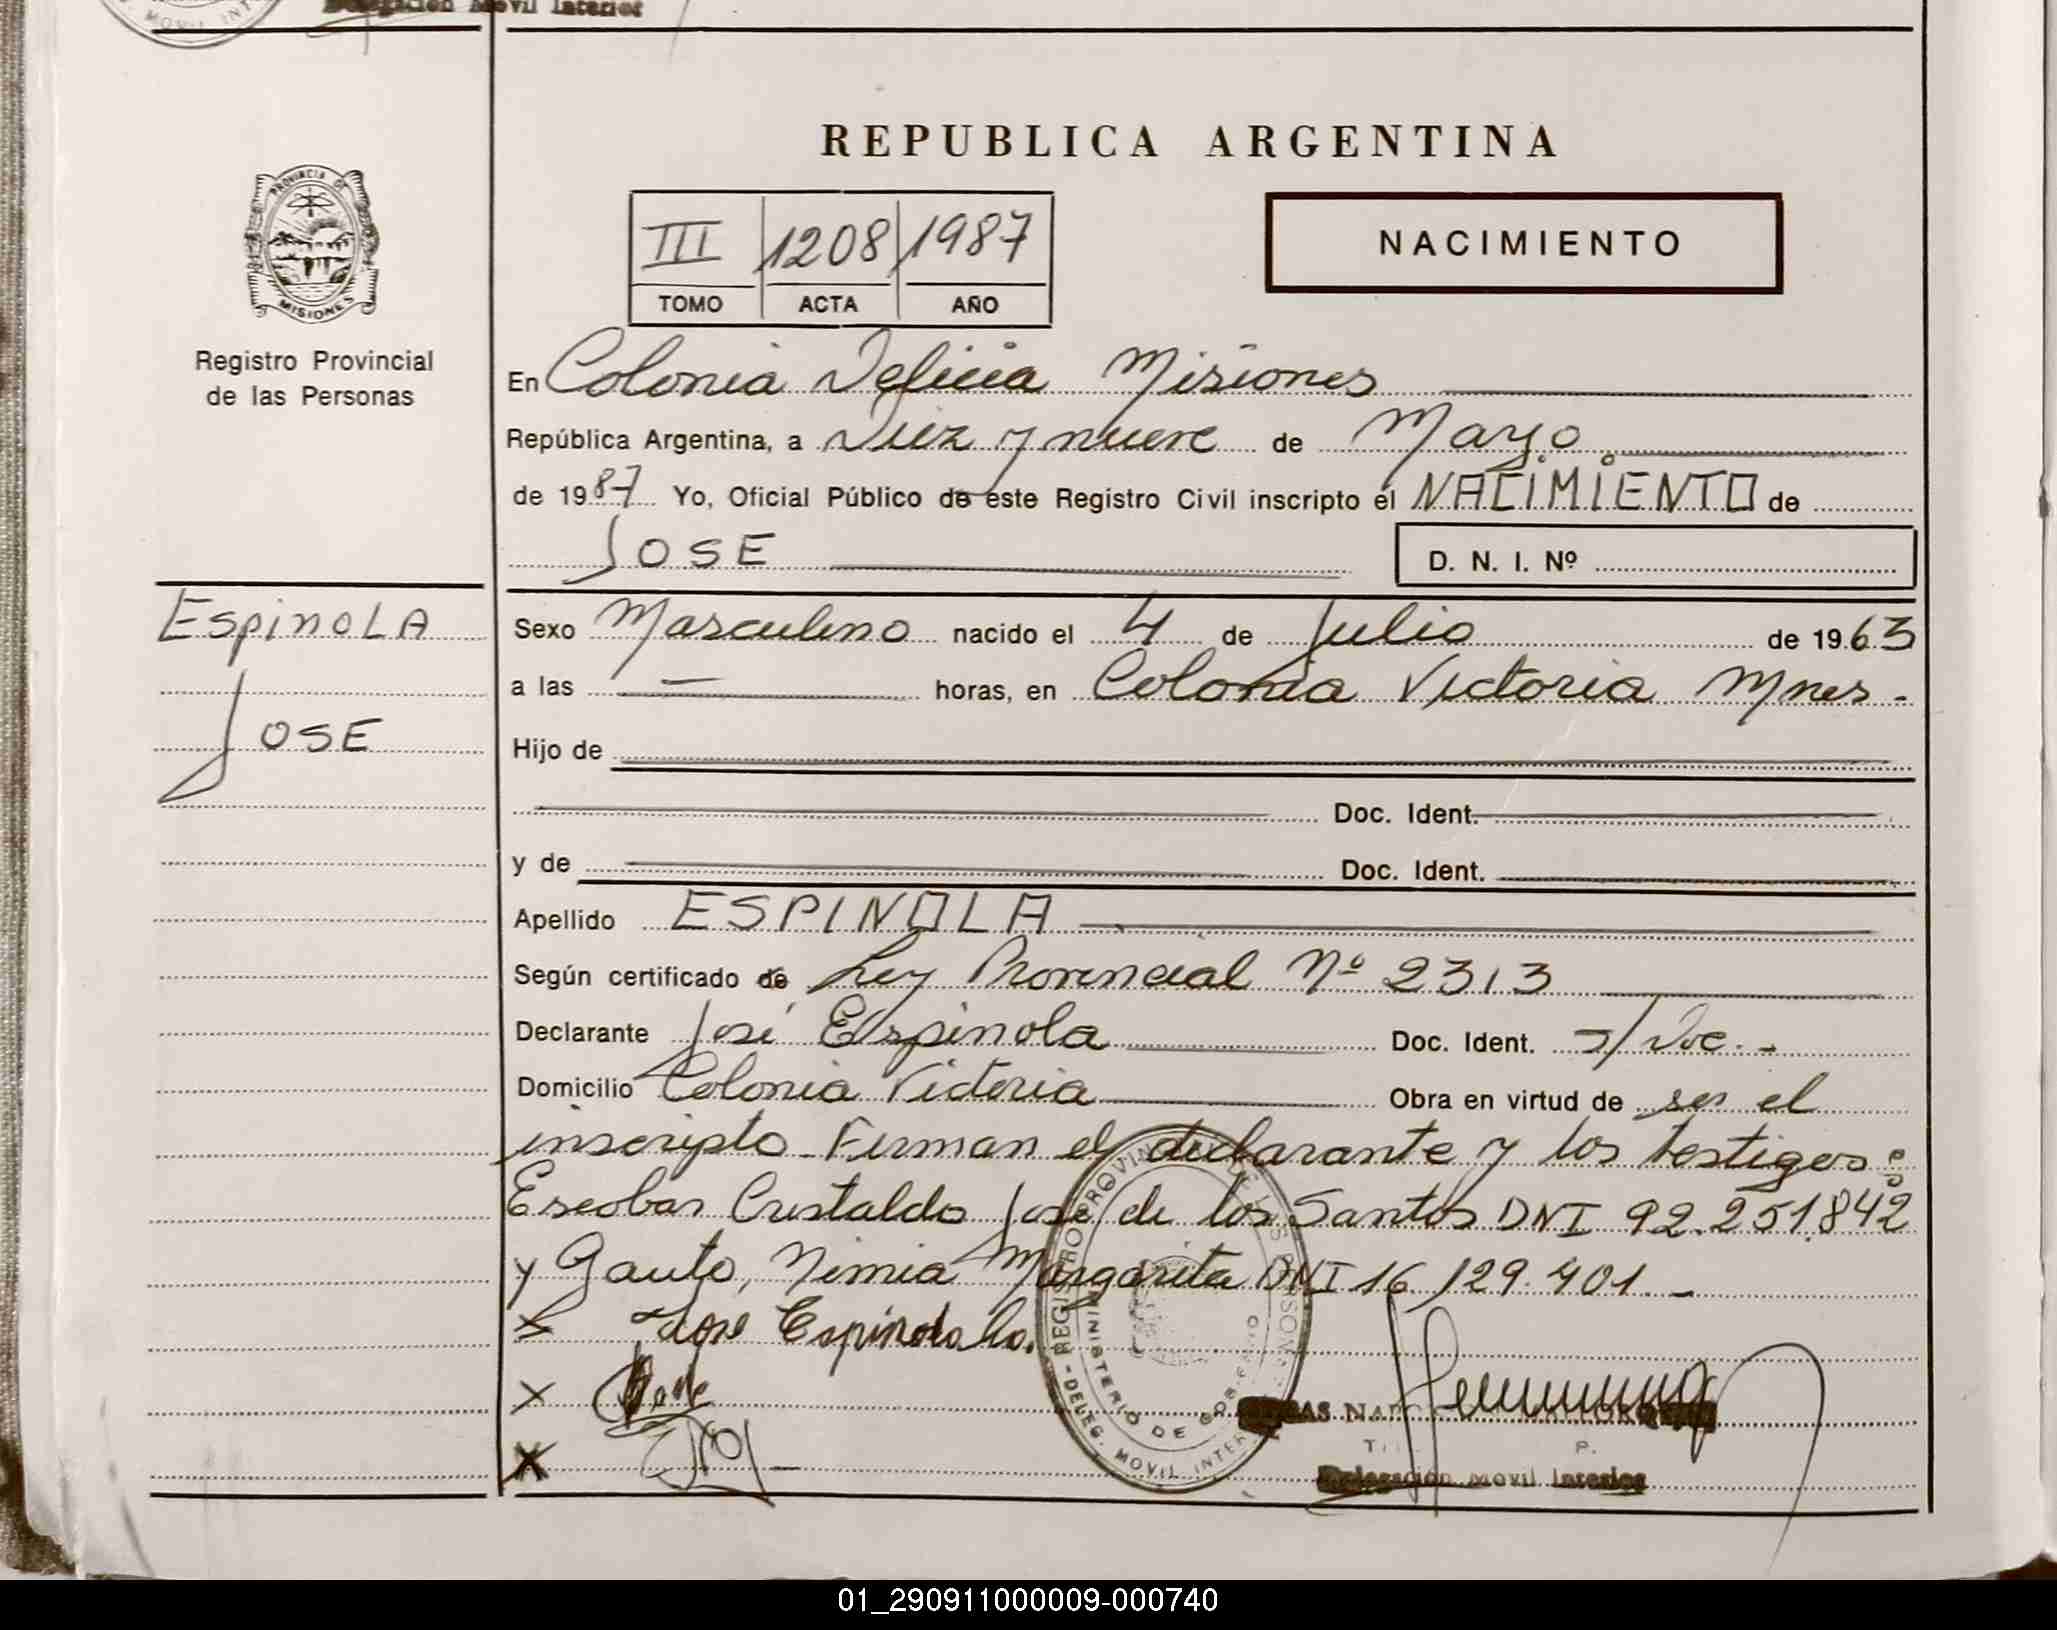 Delegación Movil Interior
REPUBLICA ARGENTINA
PROVINCIA DE
MISIONES
Registro Provincial
de las Personas
III 1208 1987
TOMO ACTA AÑO
NACIMIENTO
En Colonia Delicia Misiones
República Argentina, a Diez y nueve de Mayo
de 1987 Yo, Oficial Público de este Registro Civil inscripto el NACIMIENTO de
JOSE D. N. I. Nº
EspinoLA
JOSE
Sexo Masculino nacido el 4 de Julio de 1963
a las — horas, en Colonia Victoria Mnes.
Hijo de
Doc. Ident.
y de Doc. Ident.
Apellido ESPINOLA
Según certificado de Ley Provincial Nº 2313
Declarante José Espinola Doc. Ident. s/Doc.-
Domicilio Colonia Victoria Obra en virtud de ser el
inscripto. Firman el declarante y los testigos:
Escobar Cristaldo José de los Santos DNI 92.251.842
y Gauto, Nimia Margarita DNI 16.129.401._
x Jose Espinola
x
x
REGISTRO PROVINCIAL DE LAS PERSONAS
MINISTERIO DE GOBIERNO
DELEG. MOVIL INTERIOR
Delegación Movil Interior
01_290911000009-000740